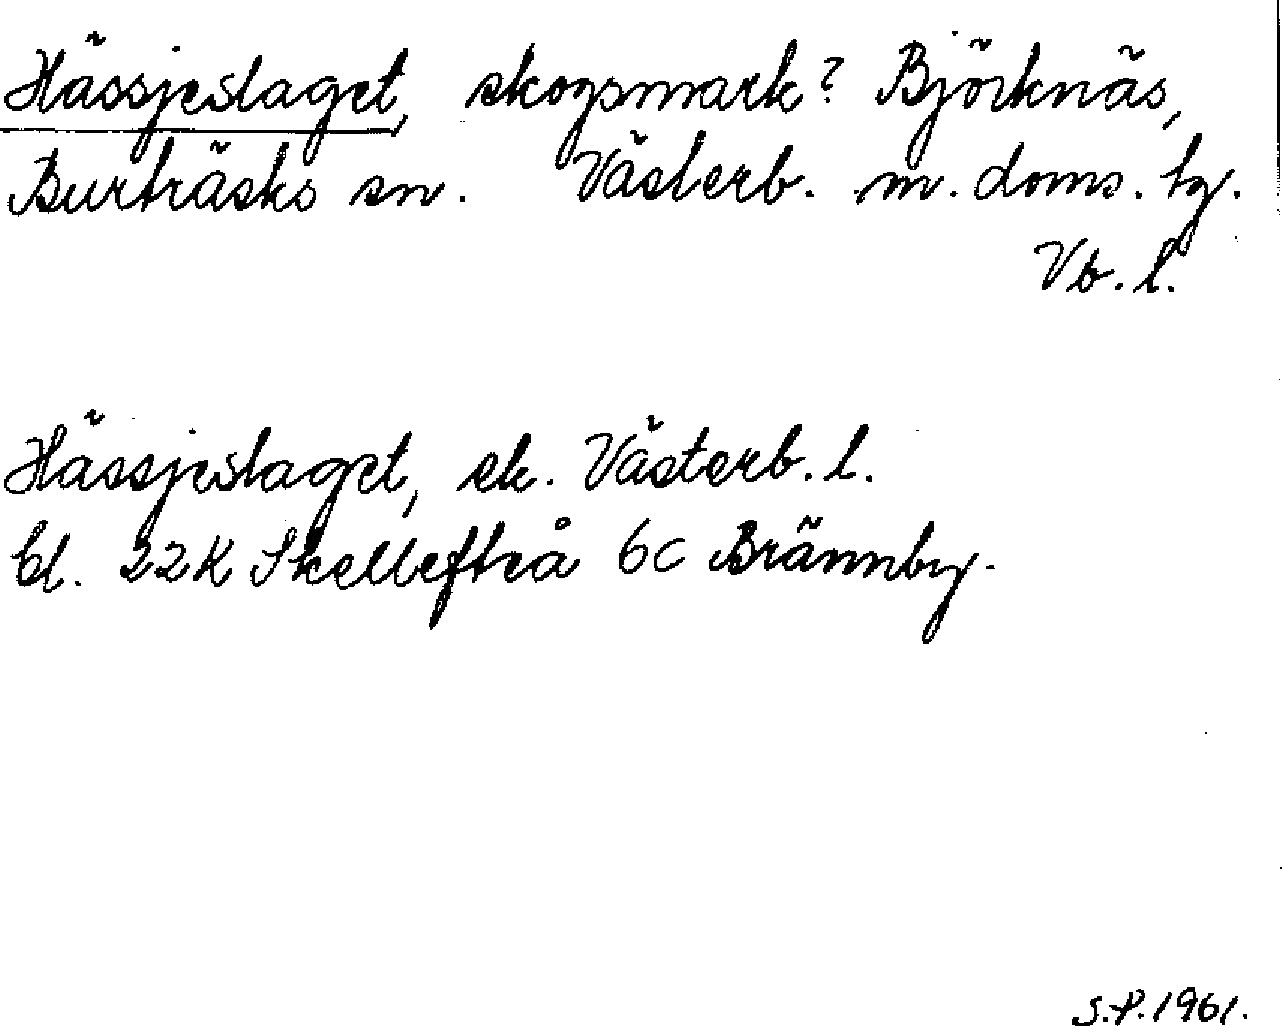 Hässjeslaget, skogsmark? Björknäs,
Burträsks sn. Västerb. m. doms. tg.
Vb. l.
Hässjeslaget, ek. Västerb. l.
bl. 22K Skellefteå 6c Brännby.
S.P. 1961.